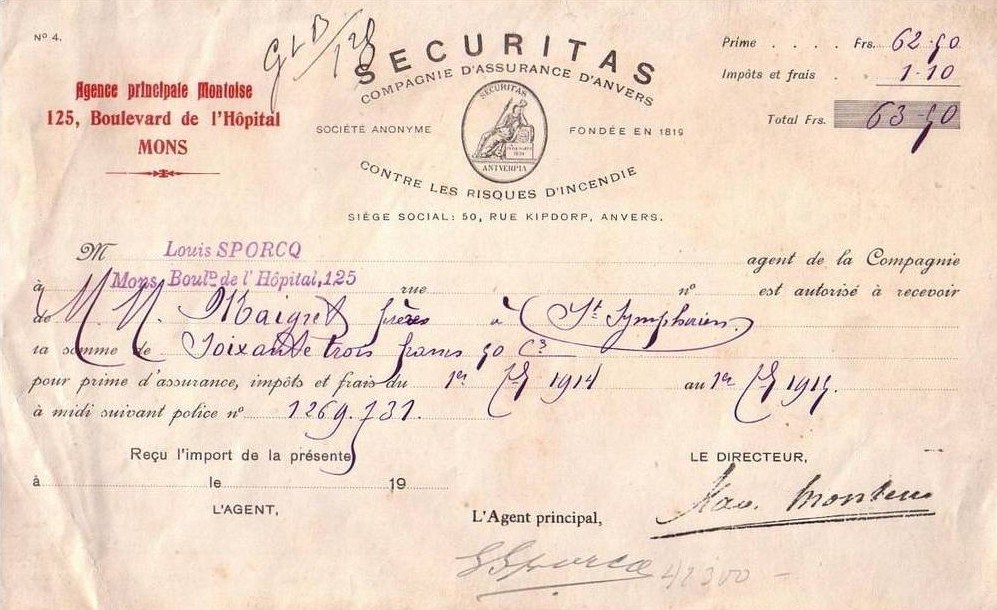 N° 4.
SECURITAS
COMPAGNIE D'ASSURANCE D'ANVERS
SOCIÉTÉ ANONYME
FONDÉE EN 1819
SECURITAS
ANTVERPIA
CONTRE LES RISQUES D'INCENDIE
SIÈGE SOCIAL: 50, RUE KIPDORP, ANVERS.
Agence principale Montoise
125, Boulevard de l'Hôpital
MONS
Prime . . . . Frs. 62.50
Impôts et frais . . 1.10
Total Frs. 63-50
M Louis SPORCQ agent de la Compagnie
à Mons, Boulд de l'Hôpital, 125 rue n° est autorisé à recevoir
de M. M. Maigret frères à St. Symphorien
la somme de Soixante trois francs 50 Cs
pour prime d'assurance, impôts et frais du 1er 1914 au 1er 1915.
à midi suivant police n° 1269.731.
Reçu l'import de la présente
à le 19
L'AGENT,
L'Agent principal,
LE DIRECTEUR,